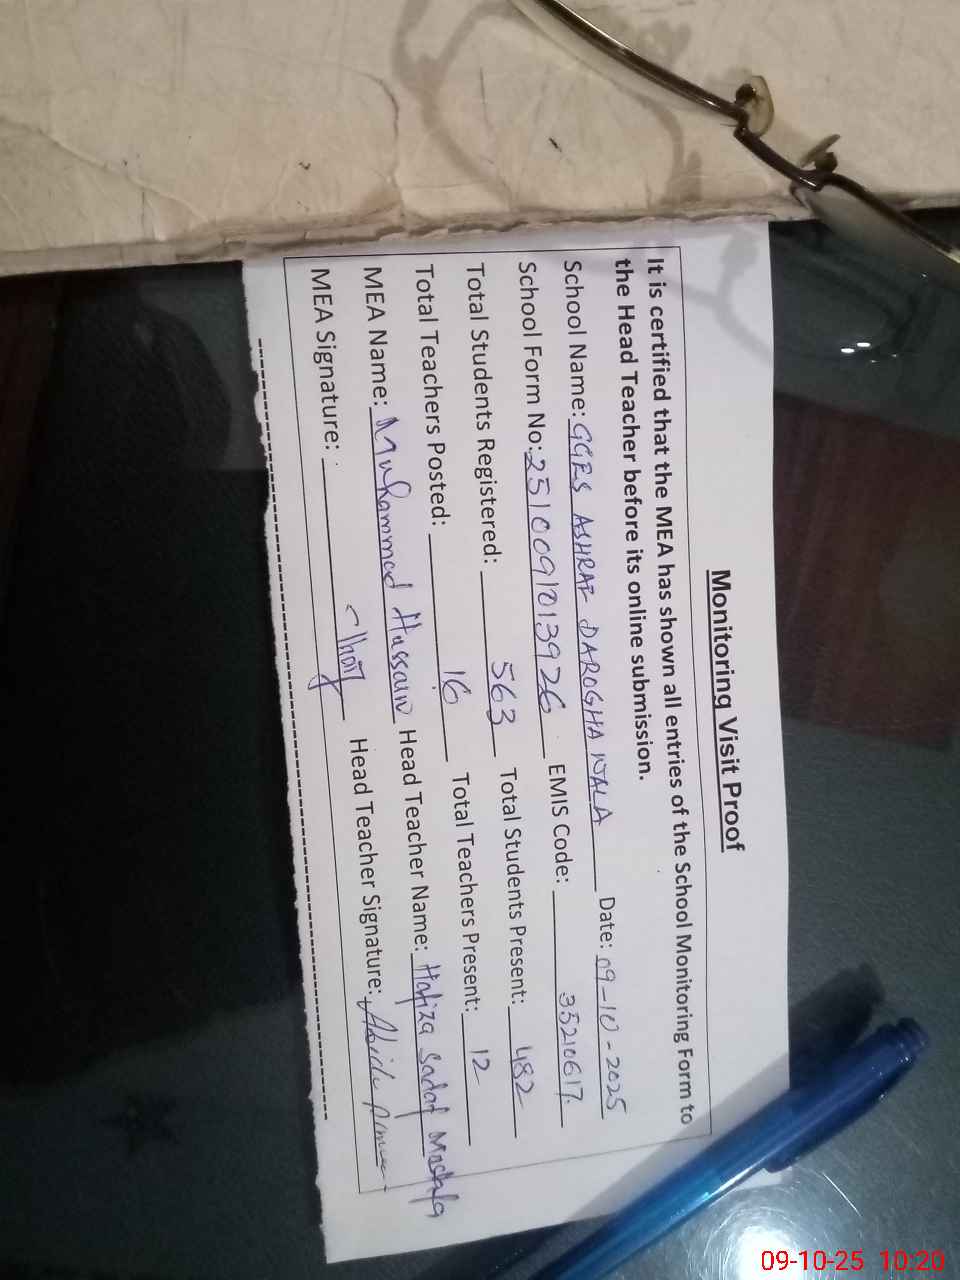 Monitoring Visit Proof
It is certified that the MEA has shown all entries of the School Monitoring Form to
the Head Teacher before its online submission.
School Name: GGES ASHRAF DAROGHA WALA Date: 09-10-2025
School Form No: 2510091013926 EMIS Code: 35210617.
Total Students Registered: 563 Total Students Present: 482
Total Teachers Posted: 16 Total Teachers Present: 12
MEA Name: Muhammad Hussain Head Teacher Name: Hafiza Sadaf Mustafa
MEA Signature: Head Teacher Signature:
09-10-25 10:20